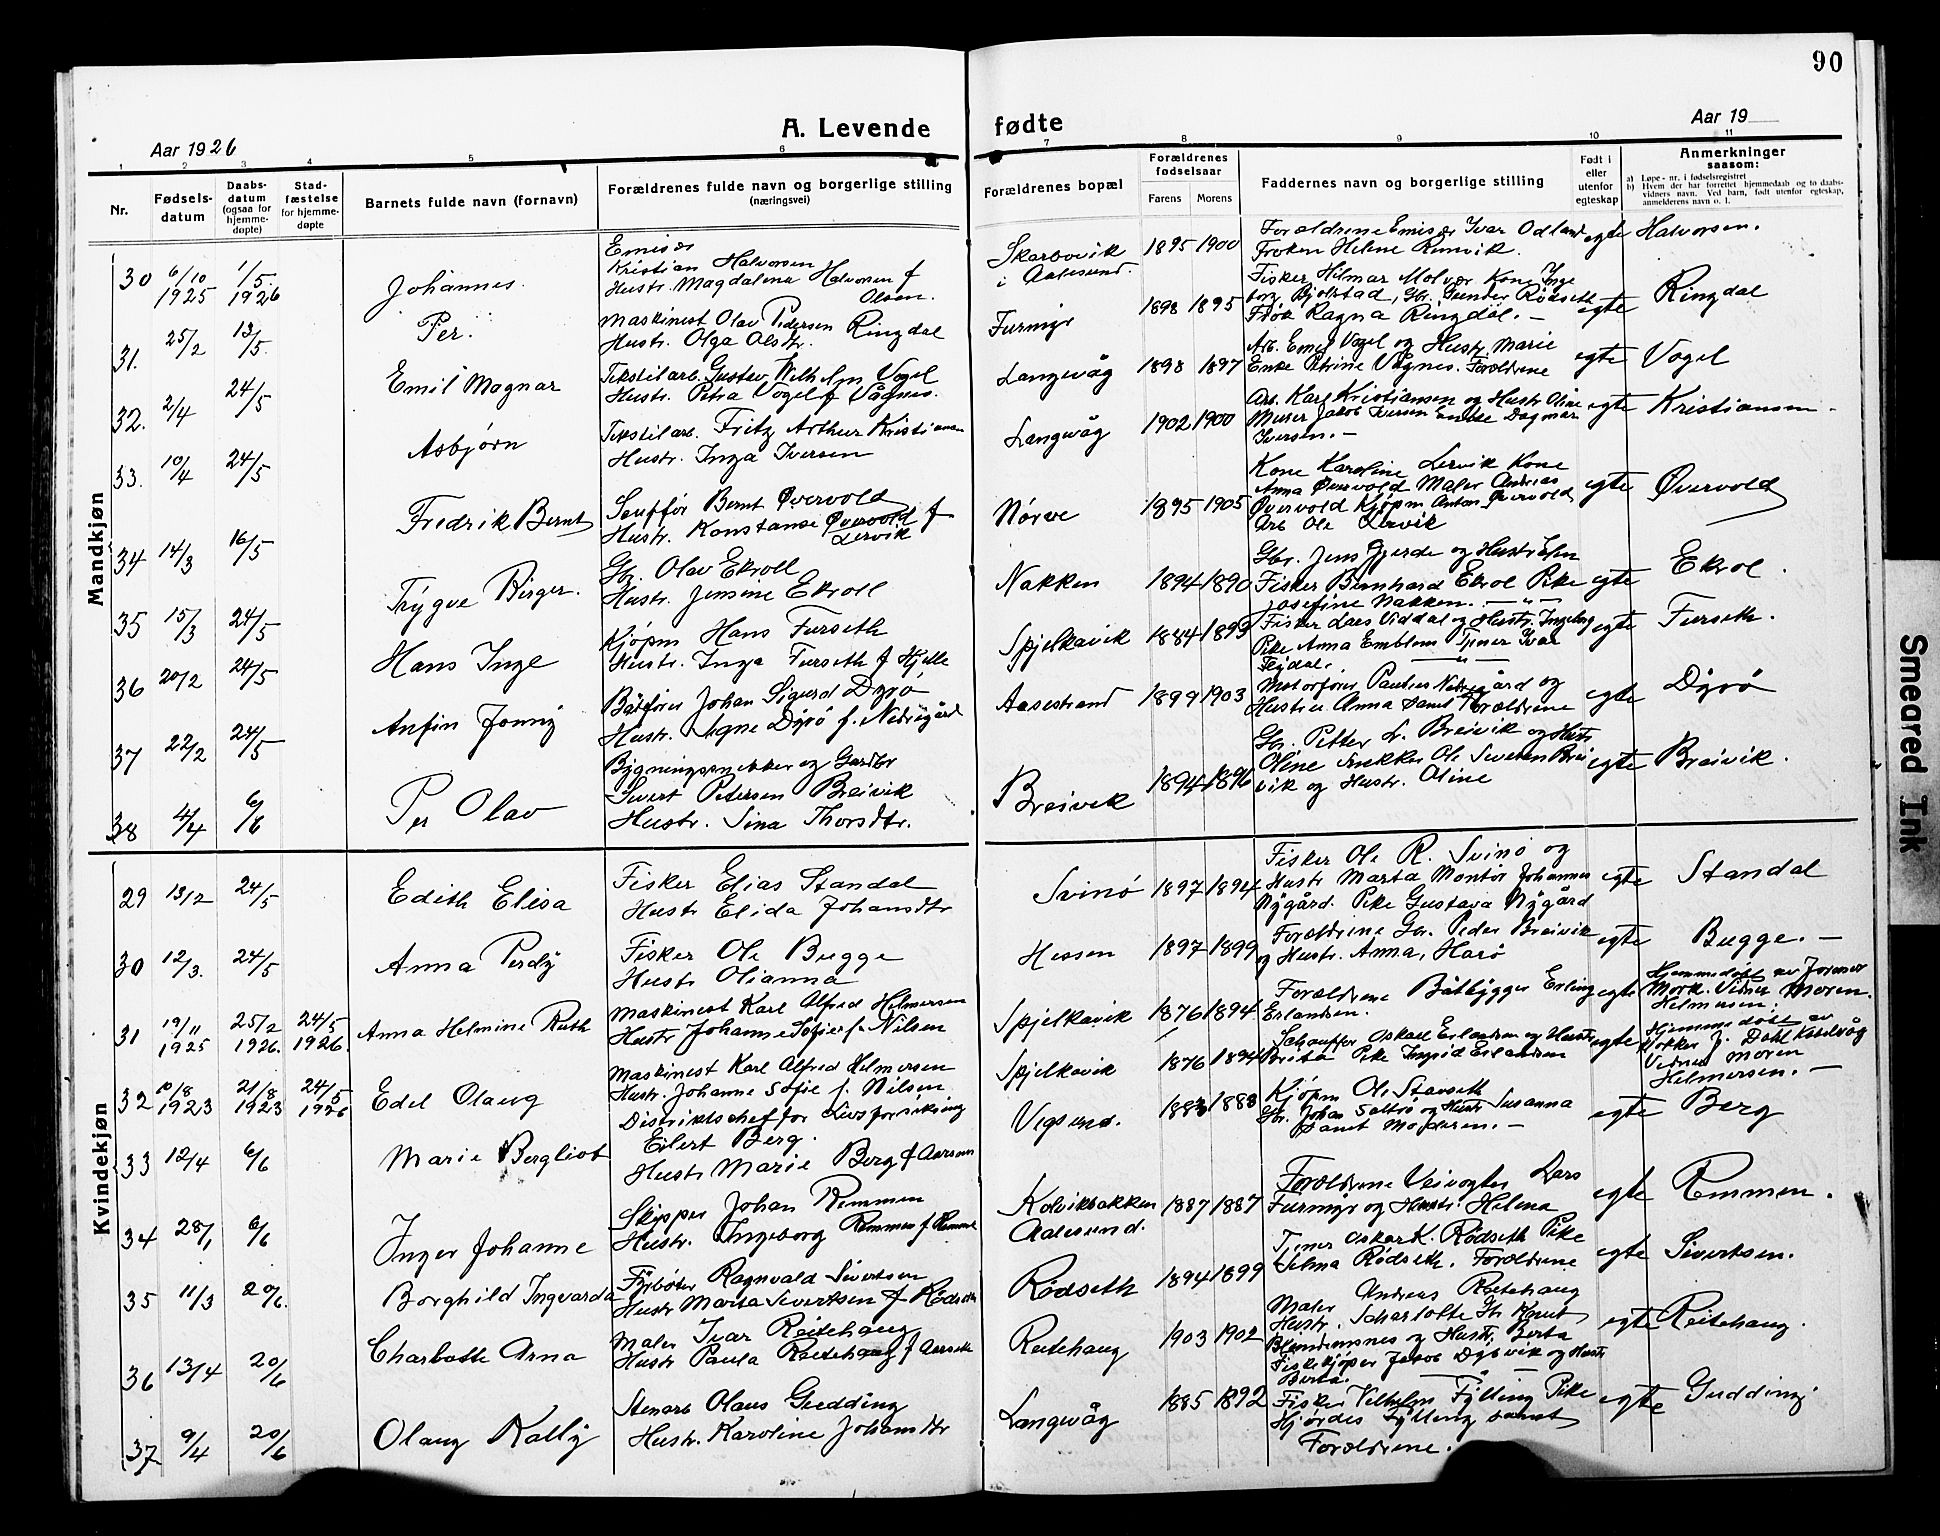 90
Aar 1926
A. Levende fødte
Aar 19
1 2 3 4 5 6 7 8 9 10 11
Nr.
Fødsels-
datum
Daabs-
datum
(ogsaa for
hjemme-
døpte)
Stad-
fæstelse
for hjemme-
døpte
Barnets fulde navn (fornavn)
Forældrenes fulde navn og borgerlige stilling
(næringsvei)
Forældrenes bopæl
Forældrenes
fødselsaar
Farens Morens
Faddernes navn og borgerlige stilling
Født i
eller
utenfor
egteskap
Anmerkninger
saasom:
a) Løpe-nr. i fødselsregistret
b) Hvem der har forrettet hjemmedaab og to daabs-
vidners navn. Ved barn, født utenfor egteskap,
anmelderens navn o. l.
Mandkjøn
30 6/10 1925 1/5 1926 Johannes.
Kristian Halvorsen
Hustr. Magdalena Halvorsen f
Olsen.
Skarbøvik
i Aalesund.
1895 1900
Forældrene Emisær Ivar Odland
Frøken Helene
egte Halvorsen.
31. 25/2 13/5. Per.
Maskinest Olav Pedersen Ringdal
Hustr. Olga Olsdtr.
Furmyr 1898 1895
Fisker Hilmar Molvær Kone Inge
borg Gunder Rødseth
Frøk Ragna Ringdal. -
egte Ringdal
32. 2/4 24/5 Emil Magnar
Tekstilarb. Gustav Wilhelm Vogel
Hustr. Petra Vogel f Vågnes.
Langevåg 1898 1897
Arb. Emil Vogel og Hustr. Marie
Enke Petrine Vågnes. Forældrene
egte Vogel
33. 10/4 24/5 Asbjørn
Tekstilarb. Fritz Arthur Kristiansen
Hustr. Inga Iversen
Langevåg 1902 1900
Arb. Karl Kristiansen og Hustr Oline
Murer Jakob Iversen Dagmar
Iversen. -
egte Kristiansen -
34 14/3 16/5 Fredrik Bernt
Bernt Øvervold
Hustr. Konstanse Øvervold f
Lervik
Nørve 1895 1905
Kone Karoline Lervik Kone
Anna Øvervold Maler Andreas
Øvervold Kjøpm Anton Øvervold
Arb Ole Lervik
egte Øvervold
35 15/3 24/5 Trygve Birger.
Gbr. Olav Ekroll
Hustr. Jensine Ekroll
Nakken 1894 1890
Gbr. Jens Gjerde og Hustr
Fisker Bernhard Ekrol Pike
Josefine Nakken.
egte Ekrol.
36 20/2 24/5 Hans Inge
Kjøpm Hans Furseth
Hustr. Inga Furseth f Hjelle
Spjelkavik 1884 1899
Fisker Lars Viddal og Hustr. Ingeborg
Pike Anna Emblem Tjener Ivar
egte Furseth.
37 22/2 24/5 Anfin Jonny
Båtfører Johan Sigurd Dyrø
Hustr. Agne Dyrø f. Nedregård
Aasestrand 1899 1903
Motorfører Paulus Nedregård og
Hustru Anna samt Forældrene
egte Dyrø
38 4/4 6/6 Per Olav
Bygningssnekker og Gardbr
Sivert Petersen Breivik
Hustr. Sina Thorsdtr.
Breivik 1894 1896
Gbr. Petter L. Breivik og Hustr
Oline Snekker Ole Severen Brei
vik og Hustr. Oline
egte Breivik.
Kvindekjøn
29 13/2 24/5 Edith Elisa
Fisker Elias Standal
Hustr Elida Johansdtr
Svinø 1897 1894
Fisker Ole R. Svinø og
Hustr Marta Montør Johannes
Nygård. Pike Gustava Nygård
egte Standal
30 12/3. 24/5 Anna Perdy
Fisker Ole Bugge
Hustr Olianna
Hessen 1897 1899
Forældrene Gbr. Peder Breivik
og Hustr. Anna, Harø
egte Bugge. -
31 19/11 1925 25/2 1926. 24/5 1926. Anna Helmine Ruth
Maskinest Karl Alfred Helmersen
Hustr Johanne Sofie f. Nilsen
Spjelkavik 1876 1894
Forældrene Båtbygger Erling
Erlandsen.
egte
Hjemmedøbt av Jormor
Mork. Vidner Moren.
Helmersen.
32 10/8 1923 21/8 1923 24/5 1926 Edel Olaug
Maskinest Karl Alfred Helmersen
Hustr. Johanne Sofie f. Nilsen
Spjelkavik 1876 1894
Schauffør Oskar Erlandsen og Hustr
Brita Pike Ingrid Erlandsen
egte
Hjemmedøbt av
J. Dahl Kabelvåg
Vidner Moren
Helmersen. -
33 12/4 6/6 Marie Bergliot
Distriktschef for Livsforsikring
Eilert Berg.
Hustr Marie Berg f Aarsnes
Vegsund. 1883 1888
Kjøpm Ole Stavseth
Gbr. Johan Saltrø og Hustr Susanna
samt Moderen. -
egte Berg
34 28/1 6/6 Inger Johanne
Skipper Johan Remmen
Hustr. Ingeborg Remmen f.
Kolvikbakken
Aalesund.
1887 1887
Forældrene Veivogter Lars
Furmyr og Hustr Helena
egte Remmen.
35 11/3 20/6. Borghild Ingvarda
Fyrbøter Ragnvald Sivertsen
Hustr Marta Sivertsen f Rødseth
Rødseth 1894 1899
Tjener Oskar K. Rødseth Pike
Selma Rødseth. Forældrene
egte Sivertsen.
36 13/4 20/6 Charlotte Arna
Maler Ivar Reitehaug
Hustr Paula Reitehaug f Aarseth
Reitehaug 1903 1902
Maler Andreas Reitehaug
Hustr. Scharlotte Gbr Knut
Blindemsnes og Hustr. Berta
Fiskekjøper Jakob Dybvik og Hustr
Berta.
egte Reitehaug.
37 9/4 20/6 Olaug Kally
Stenarb Olaus Gudding
Hustr. Karoline Johansdtr
Langevåg 1885 1892
Fisker Vilhelm Fylling Pike
Hjørdes Fylling samt
Forældrene.
egte Gudding
Smeared Ink